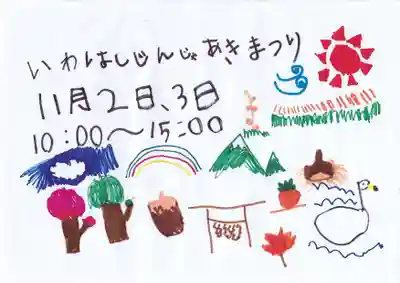 いわはしじんじゃあきまつり
11月2日、3日
10:00〜15:00